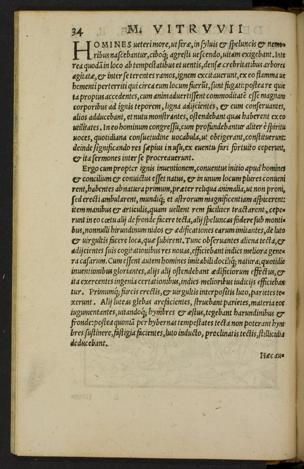 34 M. VITRVVII
HOMINES ueteri more, ut feræ, in syluis & speluncis & nemo-
ribus nascebantur, ciboq; agresti uescendo, uitam exigebant. Inte
rea quodã in loco ab tempestatibus et uentis, densæ crebritatibus arbores
agitatæ, & inter se terentes ramos, ignem excitauerunt, ex eo flamma ue
hementi perterriti qui circa eum locum fuerũt, sunt fugati: postea re quie
ta propius accedentes, cum animaduertissent commoditatẽ esse magnam
corporibus ad ignis teporem, ligna adijcientes, & eum conseruantes,
alios adducebant, et nutu monstrantes, ostendebant quas haberent ex eo
utilitates. In eo hominum congressu, cum profundebantur aliter è spiritu
uoces, quotidiana consuetudine uocabula, ut obtigerant, constituerunt:
deinde significando res sæpius in usu, ex euentu fari fortuito cœperunt,
& ita sermones inter se procreauerunt.
Ergo cum propter ignis inuentionem, conuentus initio apud homines
& concilium & conuictus esset natus, & in unum locum plures conueni
rent, habentes ab natura primum, præter reliqua animalia, ut non proni,
sed erecti ambularent, mundiq; et astrorum magnificentiam aspicerent:
item manibus & articulis, quam uellent rem faciliter tractarent, cœpe-
runt in eo cœtu alij de fronde facere tecta, alij speluncas fodere sub monti
bus, nonnulli hirundinum nidos & ædificationes earum imitantes, de luto
& uirgultis facere loca, quæ subirent. Tunc obseruantes aliena tecta, &
adijcientes suis cogitationibus res nouas, efficiebant indies meliora gene-
ra casarum. Cum essent autem homines imitabili dociliq; natura, quotidie
inuentionibus gloriantes, alijs alij ostendebant ædificiorum effectus, &
ita exercentes ingenia certationibus, indies melioribus iudicijs efficieban
tur. Primumq; furcis erectis, & uirgultis interpositis luto, parietes te-
xerunt. Alij luteas glebas arefacientes, struebant parietes, materia eos
iugumentantes, uitandoq; hymbres & æstus, tegebant harundinibus &
fronde: postea quum per hybernas tempestates tecta non poterant hym
bres sustinere, fastigia facientes, luto inducto, proclinatis tectis, stillicidia
deducebant.
Hæc au-